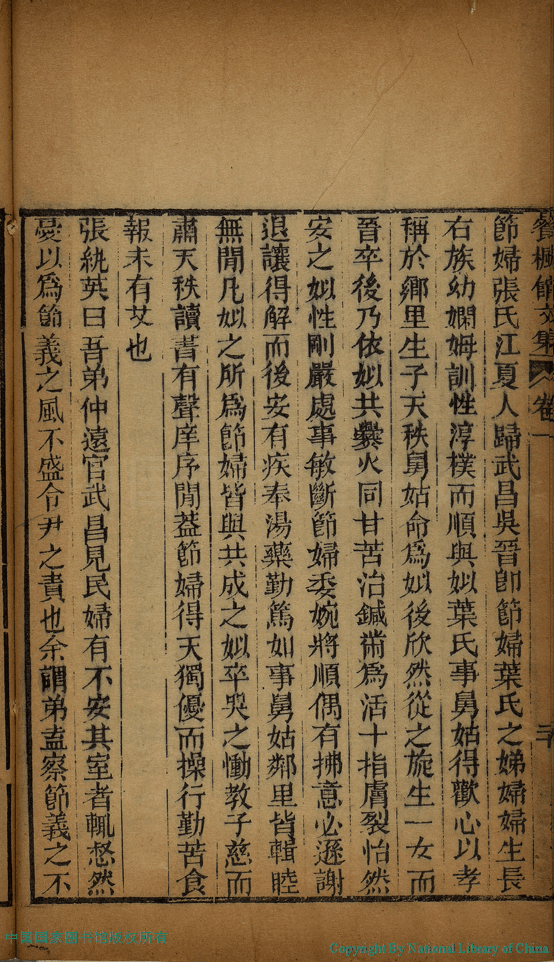 餐楓館文集 卷一
節婦張氏江夏人歸武昌吳晉卽節婦葉氏之娣婦婦生長
右族幼嫻姆訓性淳樸而順與姒葉氏事舅姑得歡心以孝
稱於鄉里生子天秩舅姑命爲姒後欣然從之旋生一女而
晉卒後乃依姒共爨火同甘苦治鍼黹爲活十指膚裂怡然
安之姒性剛嚴處事敏斷節婦委婉將順偶有拂意必遜謝
退讓得解而後安有疾奉湯藥勤篤如事舅姑鄰里皆輯睦
無閒凡姒之所爲節婦皆與共成之姒卒哭之慟教子慈而
肅天秩讀書有聲庠序閒葢節婦得天獨優而操行勤苦食
報未有艾也
張紈英曰吾弟仲遠官武昌見民婦有不安其室者輒愁然
憂以爲節義之風不盛令尹之責也余謂弟盍察節義之不
中國國家图书馆版权所有
Copyright By National Library of China